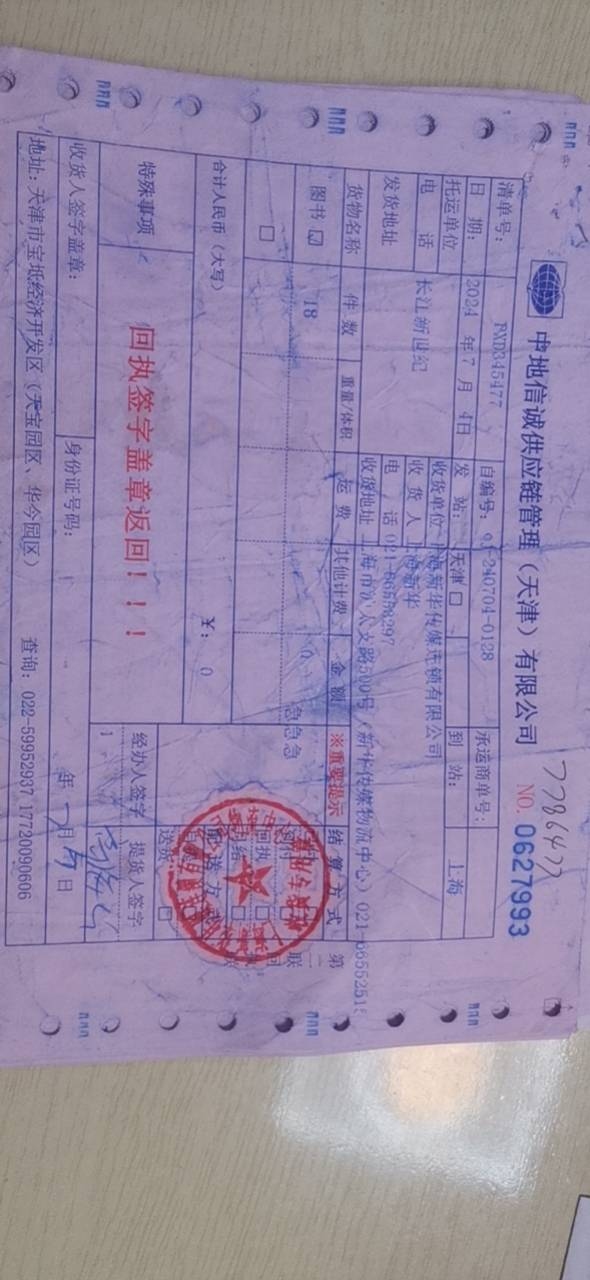 中地信诚供应链管理（天津）有限公司
7786477
NO. 0627993
清单号： FXD345477 自编号： 240704-0128 承运商单号：
日 期： 2024 年 7 月 4日 发 站： 天津 □ 到 站： 上海
托运单位 长江新世纪 收货单位 上海新华传媒连锁有限公司
电 话 收 货 人 上海新华
发货地址 电 话
收货地址 500号（新华传媒物流中心）
货物名称 件 数 重量/体积 运 费 其他计费 金 额 ※重要提示 结 算 方 式
图书 ☑ 18 0 急急急
□
合计人民币（大写） ¥： 0
特殊事项 回执签字盖章返回！！！ 经办人签字 提货人签字
收货人签字盖章： 身份证号码： 年 月 日
地址：天津市宝坻经济开发区（天宝园区、华今园区） 查询：022-59952937 17720090606
第二联